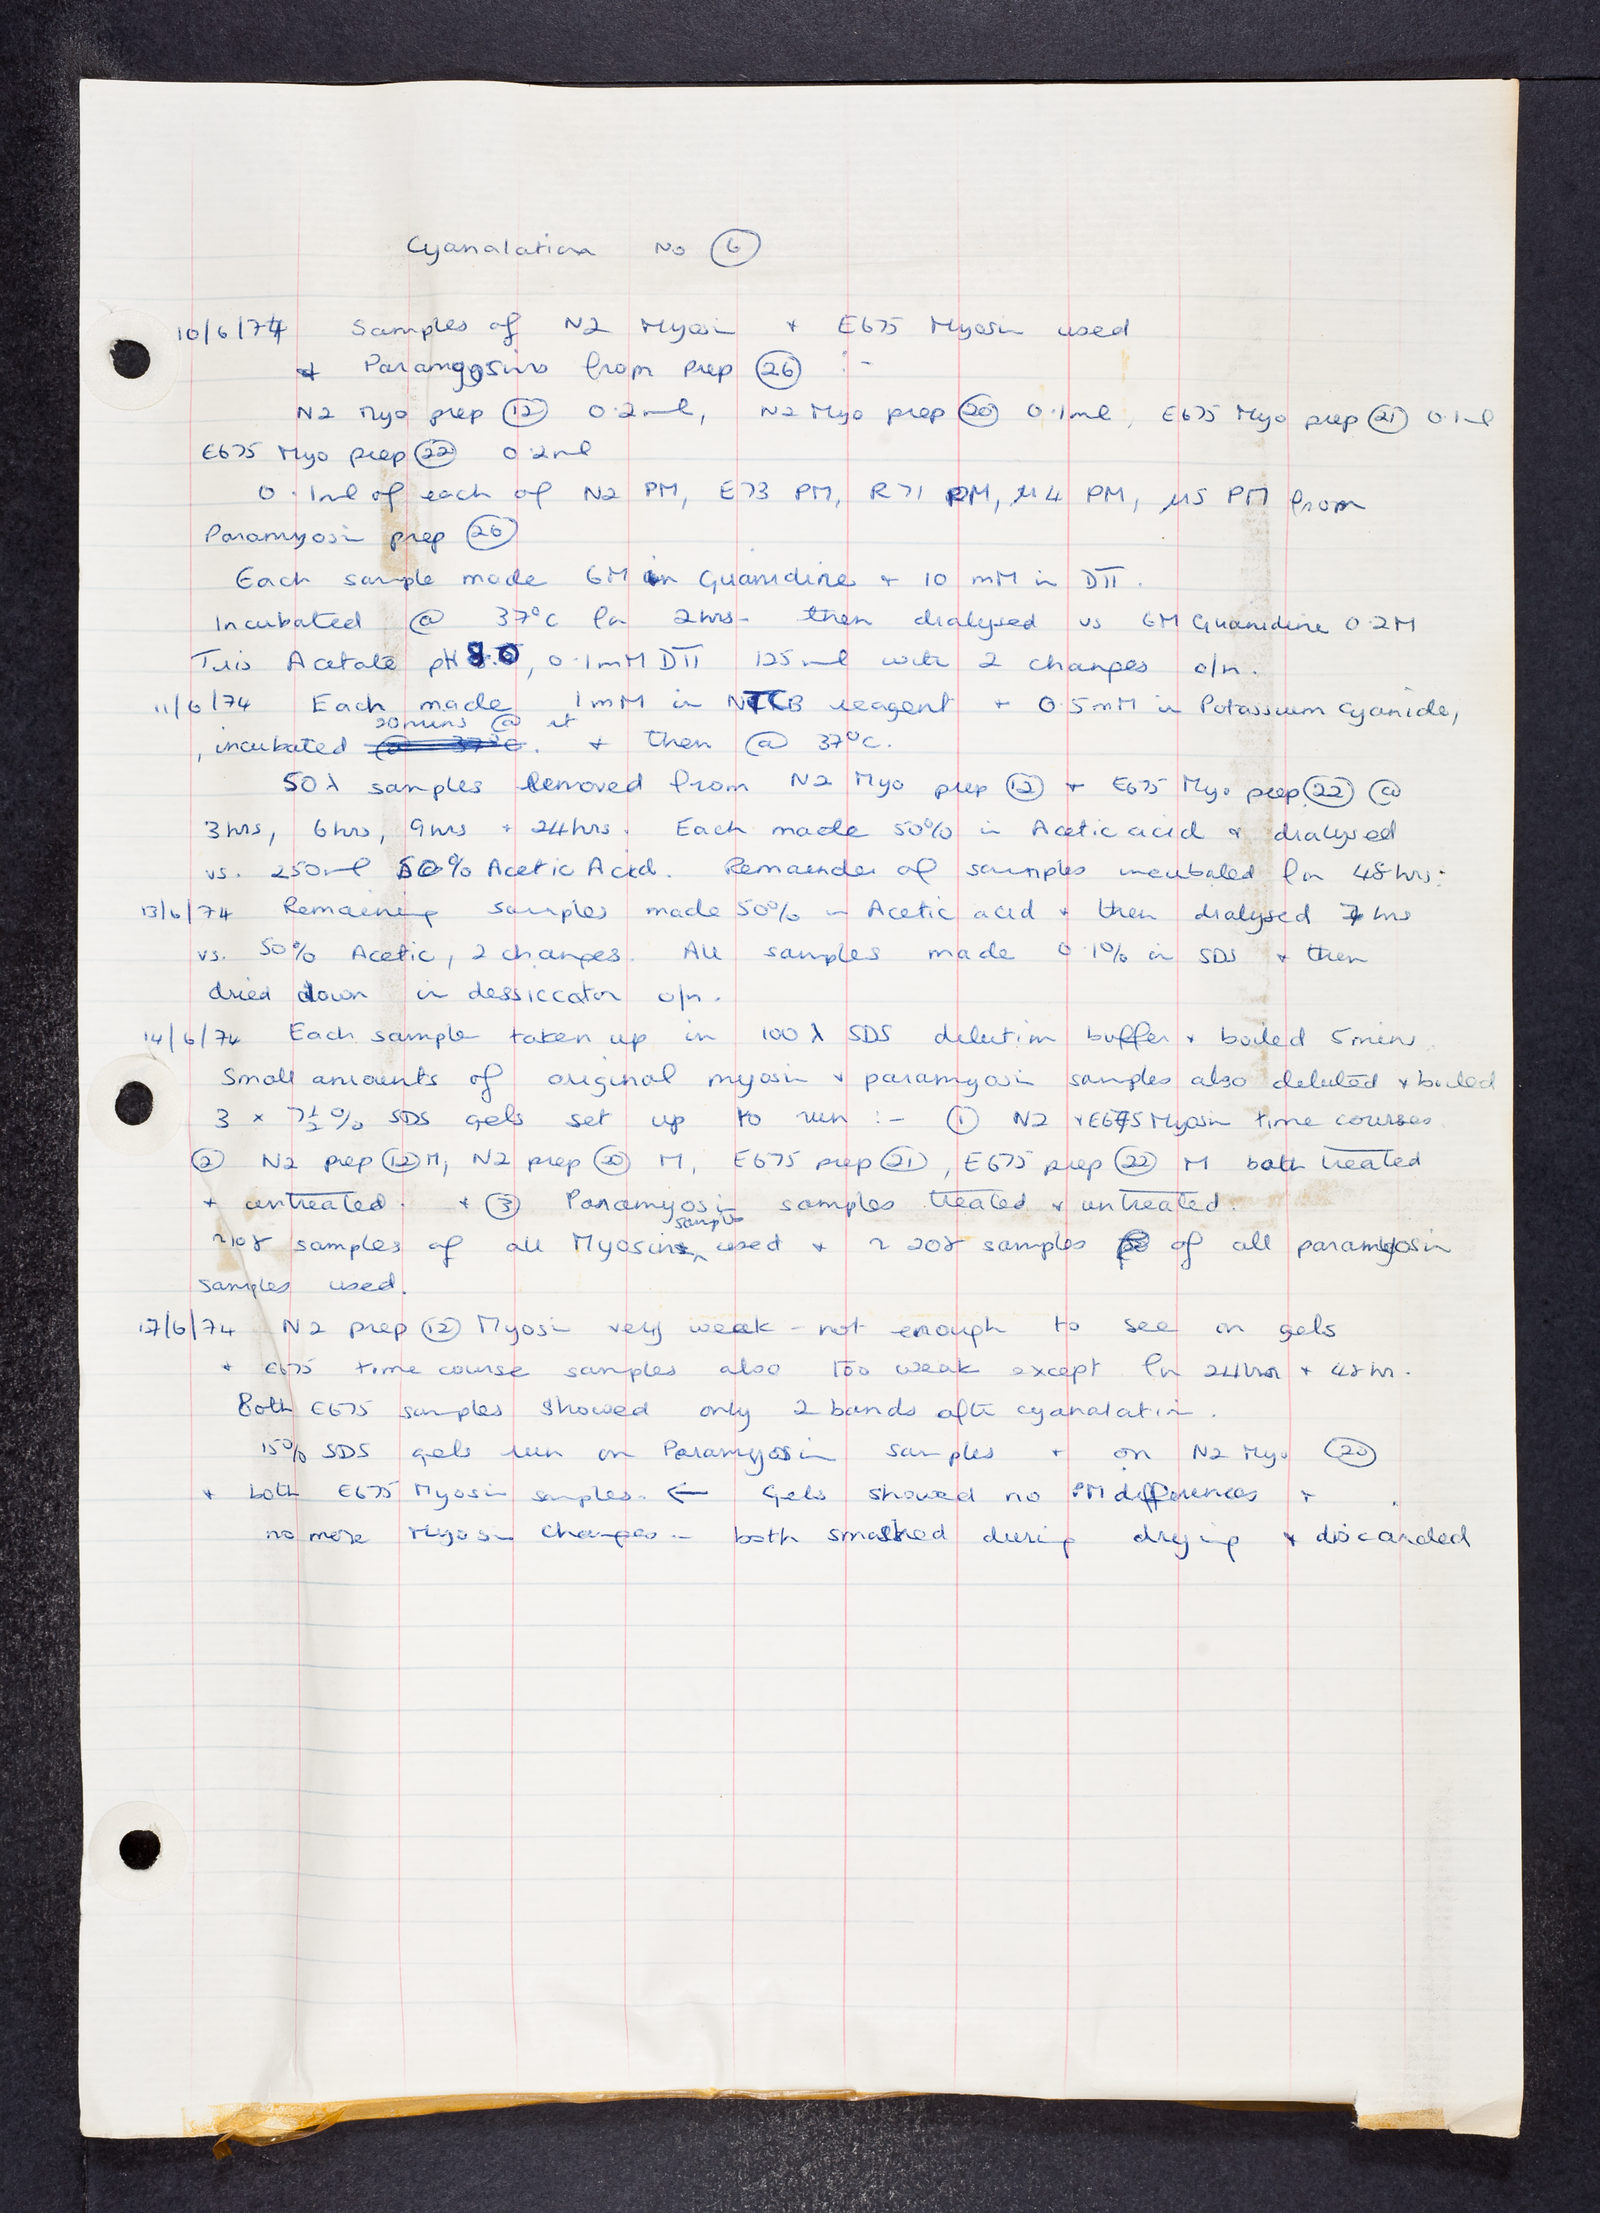 Cyanalation No 6
10/6/74 Samples of N2 Myosin + E675 Myosin used
+ Paramyosins from prep 26 :-
N2 Myo prep 12 0.2ml, N2 Myo prep 20 0.1ml, E675 Myo prep 21 0.1ml
E675 Myo prep 22 0.2ml
0.1ml of each of N2 PM, E73 PM, R71 PM, µ4 PM, µ5 PM from
Paramyosin prep 26
Each sample made 6M in Guanidine + 10 mM in DTT.
Incubated @ 37°C for 2hrs - then dialysed vs 6M Guanidine 0.2M
Tris Acetate pH 8.0, 0.1mM DTT 125ml with 2 changes o/n.
11/6/74 Each made 1mM in NTCB reagent + 0.5mM in Potassium Cyanide,
20mins @ rt
, incubated @ 37°C. + then @ 37°C.
50λ samples removed from N2 Myo prep 12 + E675 Myo prep 22 @
3hrs, 6hrs, 9hrs + 24hrs. Each made 50% in Acetic acid + dialysed
vs. 250ml 50% Acetic Acid. Remainder of samples incubated for 48hrs.
13/6/74 Remaining samples made 50% in Acetic acid + then dialysed 7 hrs
vs. 50% Acetic, 2 changes. All samples made 0.1% in SDS + then
dried down in dessiccator o/n.
14/6/74 Each sample taken up in 100 λ SDS dilution buffer + boiled 5mins.
Small amounts of original myosin + paramyosin samples also diluted + boiled
3 x 7½% SDS gels set up to run :- 1 N2 + E675 Myosin time courses.
2 N2 prep 12 M, N2 prep 20 M, E675 prep 21, E675 prep 22 M both treated
+ untreated. + 3 Paramyosin samples treated + untreated.
samples
~10γ samples of all Myosin used + ~ 20γ samples of all paramyosin
samples used.
17/6/74 N2 prep 12 Myosin very weak - not enough to see on gels
+ E675 time course samples also too weak except for 24hrs + 48hr.
Both E675 samples showed only 2 bands after cyanalation.
15% SDS gels run on Paramyosin samples + on N2 Myo 20
+ both E675 Myosin samples. ← Gels showed no PM differences +
no more Myosin changes - both smashed during drying + discarded